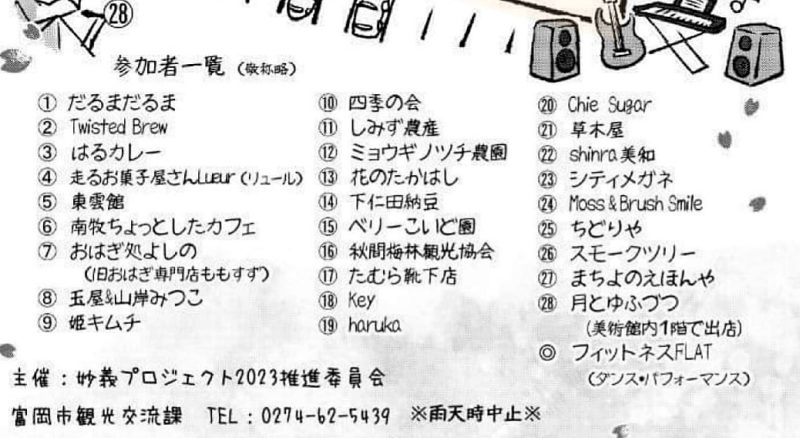 ㉘
参加者一覧 (敬称略)
① だるまだるま
② Twisted Brew
③ はるカレー
④ 走るお菓子屋さんLueur(リュール)
⑤ 東雲館
⑥ 南牧ちょっとしたカフェ
⑦ おはぎ処よしの
(旧おはぎ専門店ももすず)
⑧ 玉屋&山岸みつこ
⑨ 姫キムチ
⑩ 四季の会
⑪ しみず農産
⑫ ミョウギノツチ農園
⑬ 花のたかはし
⑭ 下仁田納豆
⑮ ベリーこいど園
⑯ 秋間梅林観光協会
⑰ たむら靴下店
⑱ Key
⑲ haruka
⑳ Chie Sugar
㉑ 草木屋
㉒ shinra美和
㉓ シティメガネ
㉔ Moss&Brush Smile
㉕ ちどりや
㉖ スモークツリー
㉗ まちよのえほんや
㉘ 月とゆふづつ
(美術館内1階で出店)
◎ フィットネスFLAT
(ダンス•パフォーマンス)
主催:妙義プロジェクト2023推進委員会
富岡市観光交流課 TEL:0274-62-5439 ※雨天時中止※